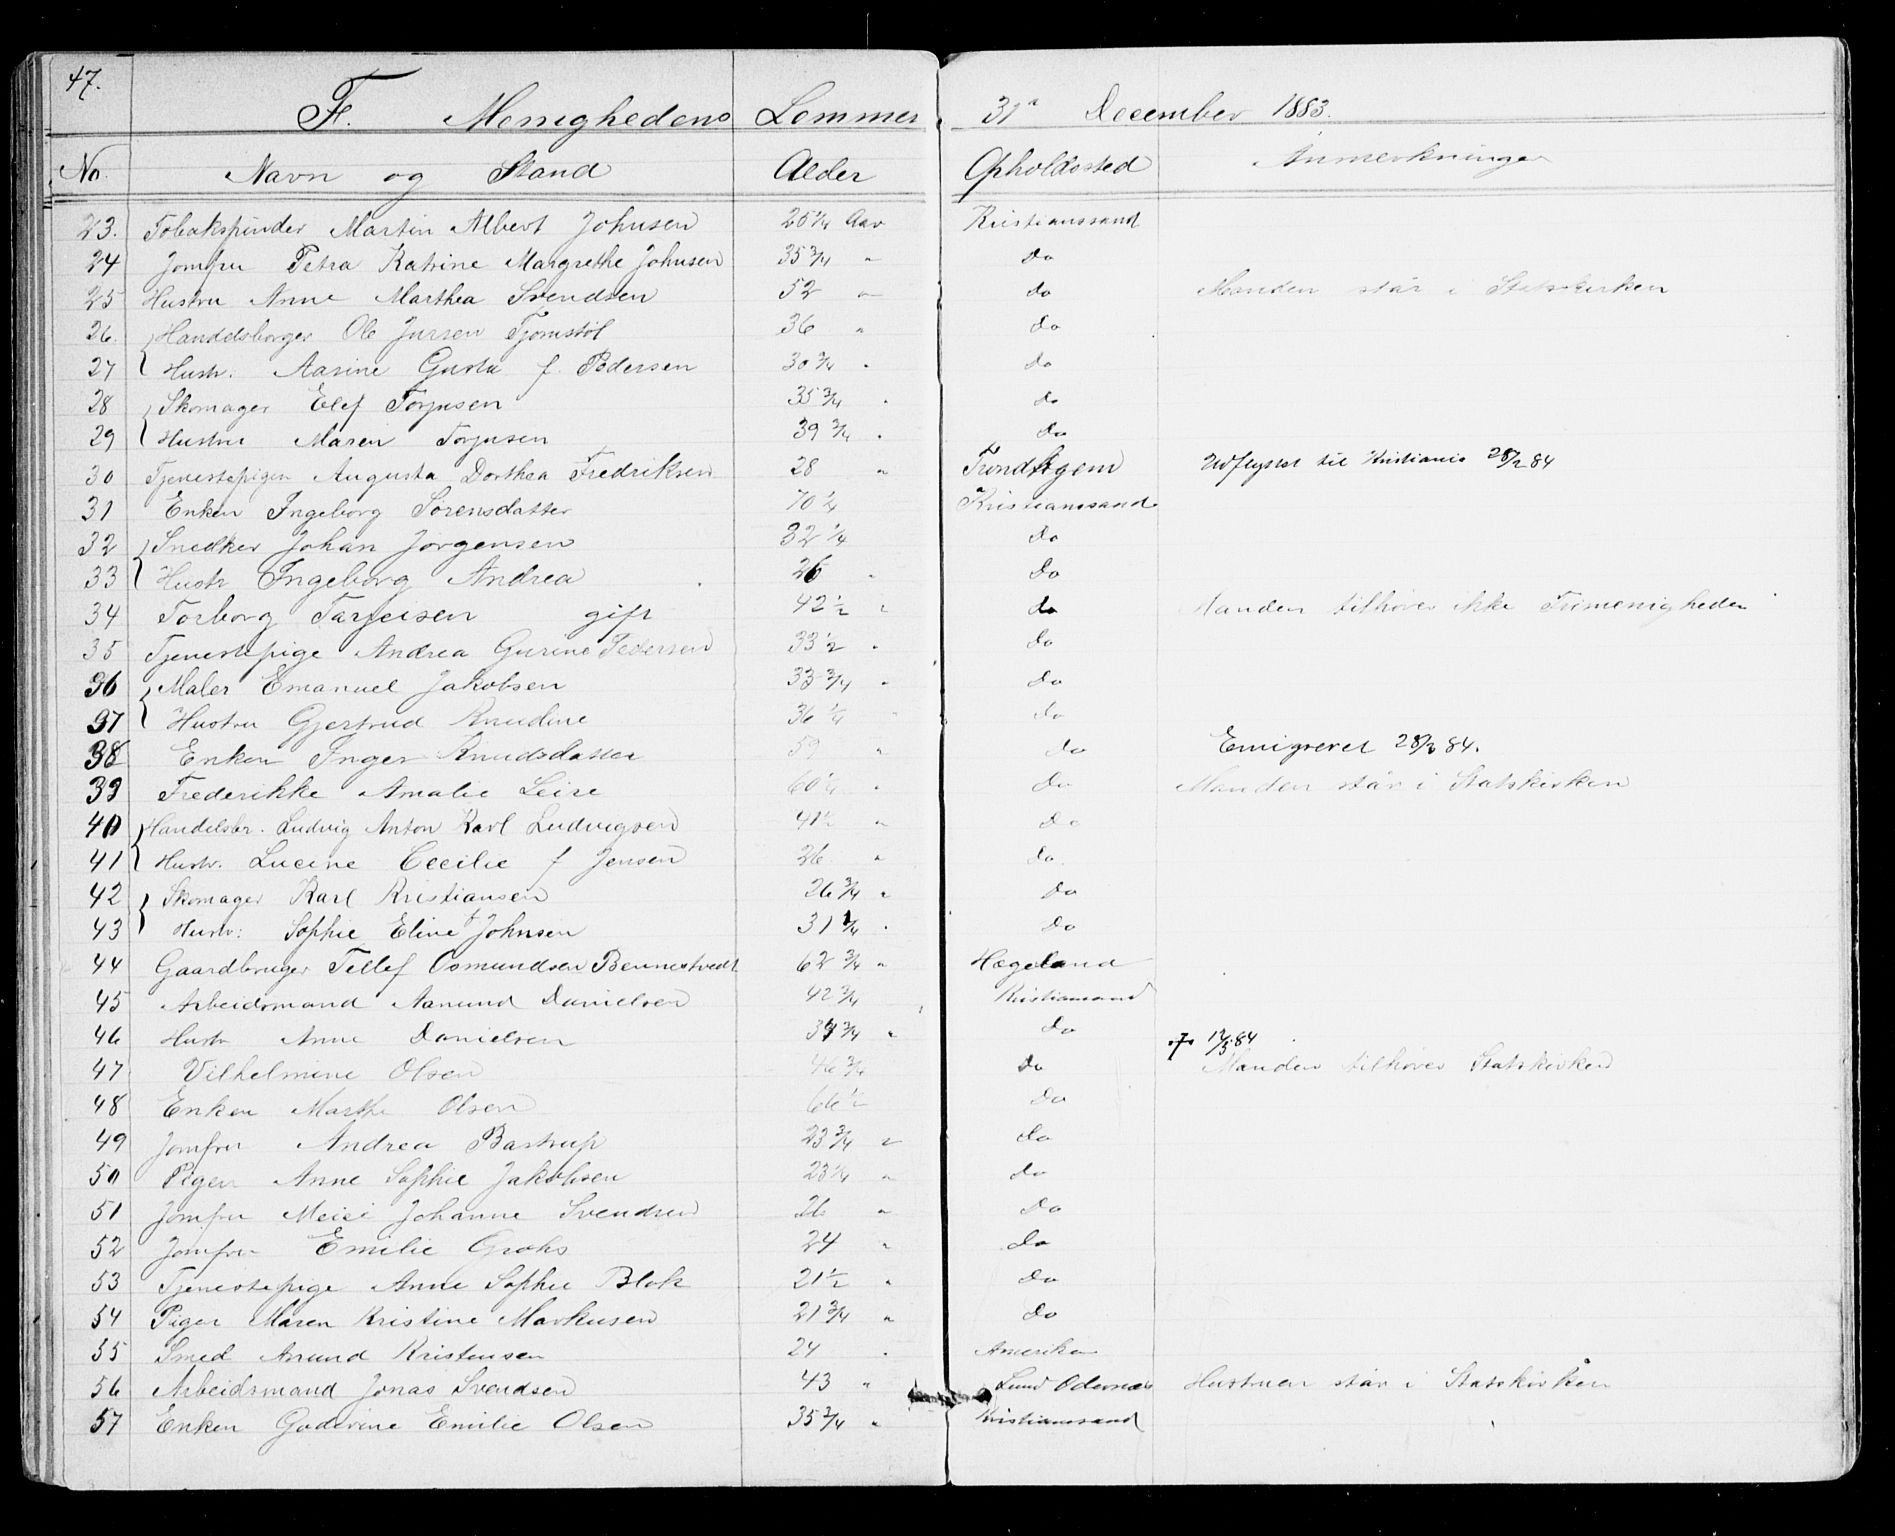 47.
F. Menighedens Lemmer 31 December 1883.
No. Navn og Stand Alder Opholdssted Anmerkninger
23. Tobakspinder Martin Albert Johnsen 25 1/4 Aar Kristianssand
24 Jomfru Petra Katrine Margrethe Johnsen 35 3/4 " do
25 Hustru Anne Marthea Svendsen 52 " do Manden står i Statskirken
26. Handelsborger Ole Jursen Tjomstöl 36 " do
27 Hustr. Aasine Gusta f. Pedersen 30 3/4 " do
28 Skomager Elef Torjusen 35 3/4 " do
29 Hustru Maren Torjusen 39 3/4 " do
30 Tjenestepigen Augusta Dorthea Fredriksen 28 " Trondhjem Udflyttet til Kristiania 28/2 84
31 Enken Ingeborg Sörensdatter 70 1/4 Kristianssand
32 Snedker Johan Jörgensen 32 1/4 do
33 Hustr Ingeborg Andrea 26 " do
34 Torborg Tarjeisen gift 42 1/2 " do Manden tilhörer ikke Frimenigheden
35 Tjenestepige Andrea Gurine Pedersen 33 1/2 " do
36 Maler Emanuel Jakobsen 33 3/4 " do
37 Hustru Gjertrud Knudine 36 1/4 " do
38 Enken Inger Knudsdatter 59 " do Emigreret 28/3 84.
39 Frederikke Amalie Leire 60 1/4 " do Manden står i Statskirken
40 Handelsbr. Ludvig Anton Karl Ludvigsen 41 1/2 " do
41 Hustr. Lucine Cecilie f Jensen 26 " do.
42 Skomager Karl Kristiansen 26 3/4 " do
43 Hustr: Sophie Eline f Johnsen 31 1/4 " do
44 Gaardbruger Tellef Osmundsen Bennestvedt 62 3/4 " Hægeland
45 Arbeidsmand Aanund Danielsen 42 3/4 Kristianssand
46 Hustr Anne Danielsen 37 3/4 " do
47 Vilhelmine Olsen 46 3/4 do † 12/5 84 Manden tilhörer Statskirken
48 Enken Marthe Olsen 66 1/2 do
49 Jomfru Andrea Bastrup 23 3/4 " do
50 Pigen Anne Sophie Jakobsen 23 1/4 " do
51 Jomfru Meier Johanne Svendsen 26 " do
52 Jomfru Emilie Grohs 24 " do
53 Tjenestepige Anne Sophie Blok 21 1/2 " do
54 Piger Maren Kristine Markusen 21 3/4 " do
55 Smed Anund Kristensen 24 " Amerika
56 Arbeidsmand Jonas Svendsen 43 " Lund Odernæs Hustruen står i Statskirken
57 Enken Gudvine Emilie Olsen 35 3/4 " Kristianssand